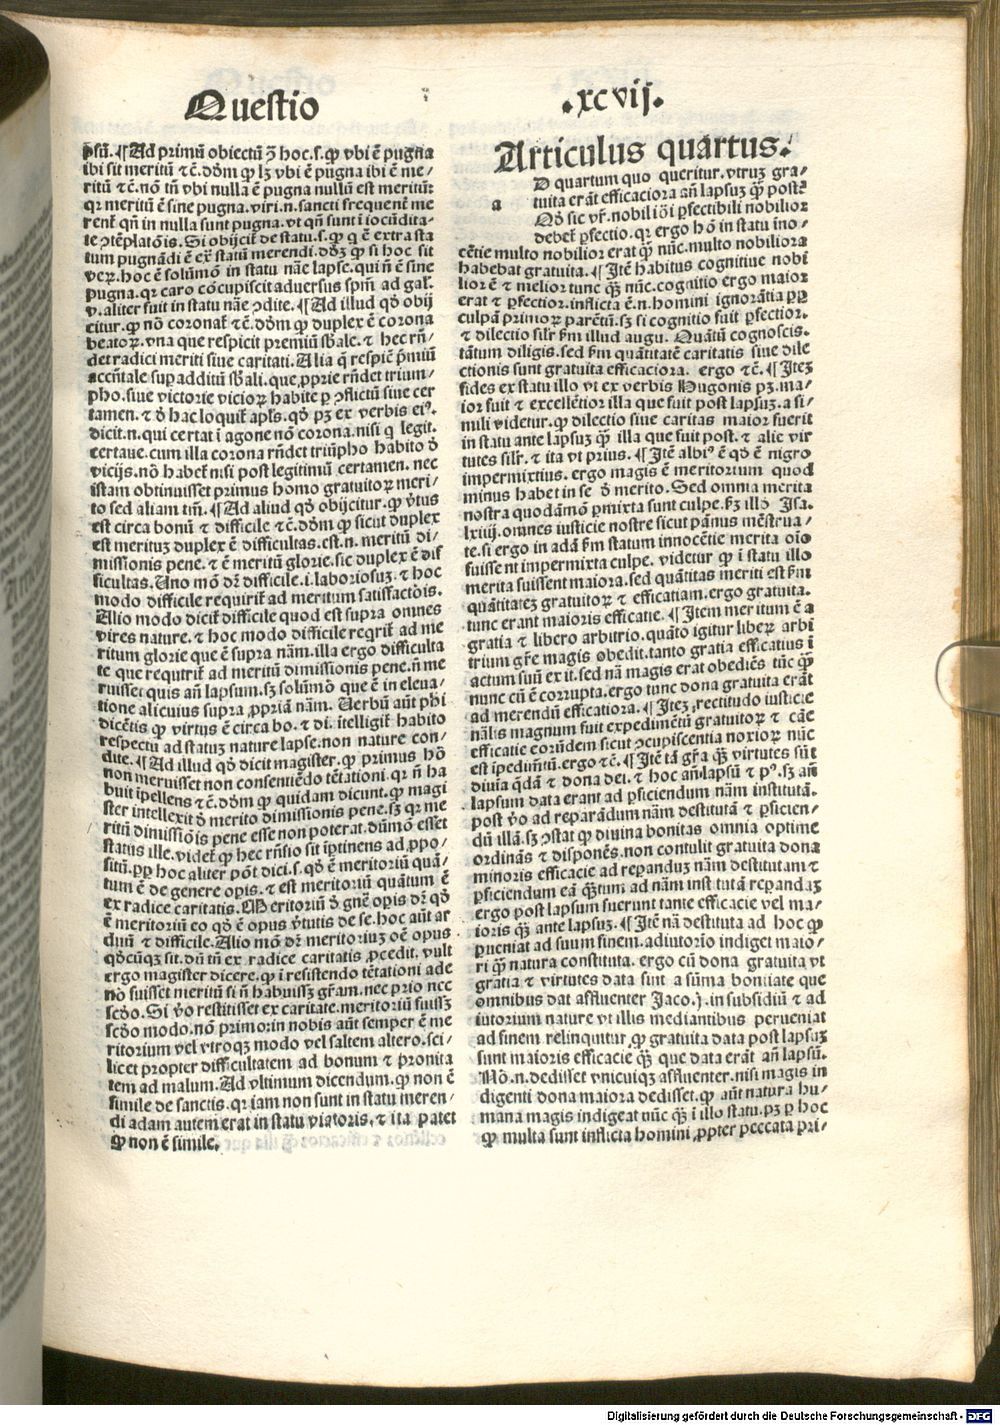 Questio
.xcvij.
psū. ¶ Ad primū obiectū ꝫ hoc.s.ꝙ vbi ē pugna
ibi sit meritū ⁊ c̄. dōm ꝙ lꝫ vbi ē pugna ibi ē me/
ritū ⁊ c̄. nō tn̄ vbi nulla ē pugna nullū est meritū:
qꝛ meritū ē sine pugna. viri.n. sancti frequent̄ me
rent̄ qn̄ in nulla sunt pugna. vt qn̄ sunt ī iocūdita-
te ꝯtēplatōis. Si obijcit̄ de statu.s.ꝙ q̄ ē extra sta
tum pugnādi ē ex̄ statū merendi. dōꝫ ꝙ si hoc sit
veꝝ. hoc ē solūmō in statu nāe lapse. qui n̄ ē sine
pugna. qꝛ caro cōcupiscit aduersus spm̄ ad gal̄.
v. aliter fuit in statu nāe ꝯdite. ¶ Ad illud qd̄ obij
citur. ꝙ nō coronat̄ ⁊ c̄. dōm ꝙ duplex ē corona
beatoꝝ. vna que respicit premiū sb̄ale. ⁊ hec rn̄/
det radici meriti siue caritati. Alia q̄ respic̄ p̄miū
accn̄tale sup additū sb̄ali. que ꝓprie rn̄det trium/
pho. siue victorie vicioꝝ habite ꝑ ꝯflictū siue cer
tamen. ⁊ d̄ hac loquit̄ apl̄s. qd̄ pꝫ ex verbis eiꝰ.
dicit.n. qui certat ī agone nō corona. nisi q̄ legit.
certaue. cum illa corona rn̄det triūpho habito d̄
vicijs. nō habet̄ nisi post legitimū certamen. nec
istam obtinuisset primus homo gratuitoꝝ meri/
to sed aliam tm̄. ¶ Ad aliud qd̄ obijcitur. ꝙ v̄tus
est circa bonū ⁊ difficile ⁊ c̄. dōm ꝙ sicut duplex
est merituꝫ duplex ē difficultas. est.n. meritū di/
missionis pene. ⁊ ē meritū glorie. sic duplex ē dif
ficultas. Uno mō dr̄ difficile.i. laboriosuꝫ. ⁊ hoc
modo difficile requirit̄ ad meritum satisfactōis.
Alio modo dicit̄ difficile quod est supra omnes
vires nature. ⁊ hoc modo difficile reqrit̄ ad me
ritum glorie que ē supra nām. illa ergo difficulta
te que requirit̄ ad meritū dimissionis pene. n̄ me
ruisset quis an̄ lapsum. sꝫ solūmō que ē in eleua/
tione alicuius supra ꝓpriā nām. Uerbū aūt phi
dicētis ꝙ virtus ē circa bo. ⁊ di. ītelligit̄ habito
respectu ad statuꝫ nature lapse. non nature con/
dite. ¶ Ad illud qd̄ dicit magister. ꝙ primus hō
non meruisset non consentiēdo tētationi. qꝛ n̄ ha
buit īpellens ⁊ c̄. dōm ꝙ quidam dicunt. ꝙ magi
ster intellexit d̄ merito dimissionis pene. sꝫ qꝛ me
ritū dimissiōis pene esse non poterat. dūmō esset
status ille. videt̄ ꝙ hec rn̄sio sit īptinens ad ꝓpo/
situ. ꝓp̄ hoc aliter pōt dici.s. qd̄ ē meritoriū quā/
tum ē de genere opis. ⁊ est meritoriū quātum ē
ex radice caritatis. Meritoriū d̄ gn̄e opis dr̄ qd̄
ē meritoriū eo qd̄ ē opus v̄tutis de se. hoc aūt ar
duū ⁊ difficile. Alio mō dr̄ meritoriuꝫ oē opus
qd̄cūqꝫ sit. dū tn̄ ex radice caritatis ꝓcedit. vult
ergo magister dicere. ꝙ ī resistendo tētationi ade
nō fuisset meritū si n̄ habuissꝫ gr̄am. nec prio nec
scd̄o. Si v̄o restitisset ex caritate. meritoriū fuissꝫ
scd̄o modo. nō primo: in nobis aūt semper ē me
ritorium vel vtroqꝫ modo vel saltem altero. sci/
licet propter difficultatem ad bonum ⁊ pronita
tem ad malum. Ad vltimum dicendum. ꝙ non ē
simile de sanctis. qꝛ iam non sunt in statu meren/
di adam autem erat in statu viatoris. ⁊ ita patet
ꝙ non ē simile.
Articulus quartus.
a
D quartum quo queritur. vtruꝫ gra/
tuita erāt efficaciora an̄ lapsuꝫ ꝙ̄ postꝭ
Qd̄ sic vr̄. nobiliōi ꝑfectibili nobilior
debet̄ ꝑfectio. qꝛ ergo hō in statu īno/
cētie multo nobilior erat ꝙ̄ nūc. multo nobiliora
habebat gratuita. ¶ Itē habitus cognitiue nobi
lior ē ⁊ melior tunc qꝫ̄ nūc. cognitio ergo maior
erat ⁊ ꝑfectior. inflicta ē.n. homini ignorātia ꝓp̄
culpā primoꝝ parētū. sꝫ si cognitio fuit ꝑfectior.
⁊ dilectio silr̄ ẜm illud augu. Quātū cognoscis.
tātum diligis. sed ẜm quātitatē caritatis siue dile
ctionis sunt gratuita efficaciora. ergo ⁊ c̄. ¶ Iteꝫ
fides ex statu illo vt ex verbis Hugonis pꝫ. ma/
ior fuit ⁊ excellētior illa que fuit post lapsuꝫ. a si/
mili videtur. ꝙ dilectio siue caritas maior fuerit
in statu ante lapsuꝫ ꝙ̄ illa que fuit post. ⁊ alie vir
tutes silr̄. ⁊ ita vt prius. ¶ Itē albiꝰ ē qd̄ ē nigro
impermixtius. ergo magis ē meritorium quod
minus habet in se d̄ merito. Sed omnia merita
nostra quodāmō ꝑmixta sunt culpe. ẜꝫ illd̄ Isa.
lxiiij. omnes iusticie nostre sicut pānus mēstrua/
te. si ergo in adā ẜm statum innocētie merita oīo
fuissent impermixta culpe. videtur ꝙ ī statu illo
merita fuissent maiora. sed quātitas meriti est ẜm
quātitateꝫ gratuitoꝝ ⁊ efficatiam. ergo gratuita.
tunc erant maioris efficatie. ¶ Item meritum ē a
gratia ⁊ libero arbitrio. quāto igitur liberꝝ arbi
trium gr̄e magis obedit. tanto gratia efficatius ī
actum suū exit. sed nā magis erat obediēs tūc ꝙ̄
nunc cū ē corrupta. ergo tunc dona gratuita erāt
ad merendū efficatiora. ¶ Iteꝫ, rectitudo iusticie
nālis magnum fuit expedimētū gratuitoꝝ ⁊ cāe
efficatie eorūdem sicut ꝯcupiscentia noxioꝝ nūc
est īpedimētū. ergo ⁊ c̄. ¶ Itē tā gr̄a qꝫ̄ virtutes sūt
diuīa q̄dā ⁊ dona dei. ⁊ hoc an̄ lapsū ⁊ pꝰ. sꝫ an̄
lapsum data erant ad ꝑficiendum nām institutā.
post v̄o ad reparādum nām destitutā ⁊ ꝑficien/
dū illā. sꝫ ꝯstat ꝙ diuina bonitas omnia optime
ordinās ⁊ disponēs. non contulit gratuita dona
minoris efficacie ad repanduꝫ nām destitutam ⁊
ꝑficiendum eā qꝫ̄tum ad nām institutā repandaꝫ
ergo post lapsum fuerunt tante efficacie vel ma/
ioris qꝫ̄ ante lapsuꝫ. ¶ Itē nā destituta ad hoc ꝙ
ꝑueniat ad suum finem. adiutorio indiget maio/
ri ꝙ̄ natura constituta. ergo cū dona gratuita vt
gratia ⁊ virtutes data sint a sūma bonitate que
omnibus dat affluenter Jaco.j. in subsidiū ⁊ ad
iutorium nature vt illis mediantibus perueniat
ad finem relinquitur ꝙ gratuita data post lapsuꝫ
sunt maioris efficacie qꝫ̄ que data erāt an̄ lapsū.
Nō.n. dedisset vnicuiqꝫ affluenter. nisi magis in
digenti dona maiora dedisset. ꝙ aūt natura hu/
mana magis indigeat nūc qꝫ̄ ī illo statu. pꝫ ꝑ hoc
ꝙ multa sunt inflicta homini ꝓpter peccata pri/
Digitalisierung gefördert durch die Deutsche Forschungsgemeinschaft - DFG